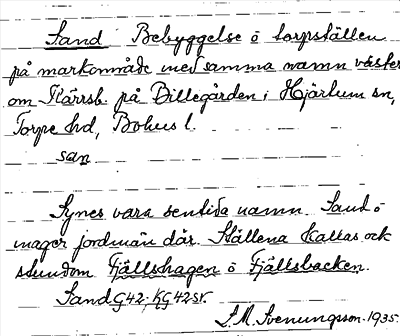 Sand Bebyggelse å torpställen
på markområde med samma namn väster
om Kärrsb. på Billegården i Hjärtum sn,
Torpe hd, Bohus l.
san
Synes vara sentida namn. Sand o
mager jordmån där. Ställena kallas ock
stundom Fjällshagen o Fjällsbacken.
Sand G42. KG42SV.
L.M. Svenungsson. 1935.